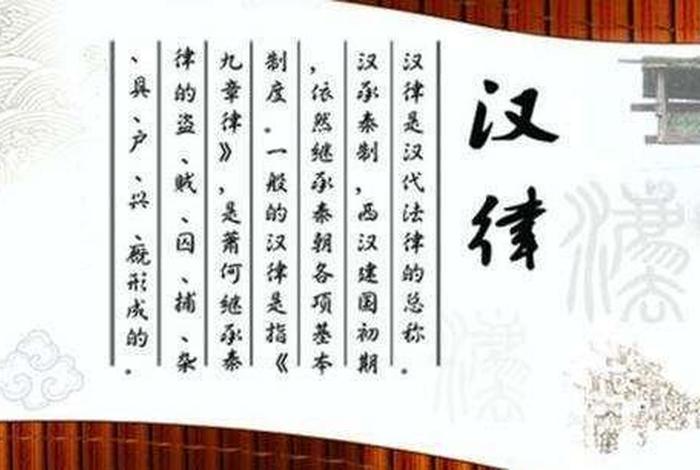 汉律
汉律是汉代法律的总称。
汉承秦制，西汉建国初期
，依然继承秦朝各项基本
制度。一般的汉律是指《
九章律》，是萧何继承秦
律的盗、贼、囚、捕、杂
、具、户、兴、厩形成的。
漢
漢